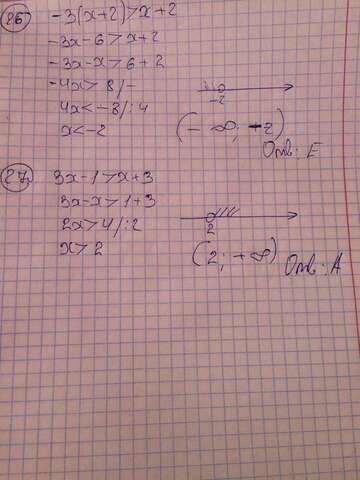 26) -3(x+2)>x+2
-3x-6>x+2
-3x-x>6+2
-4x>8/-
4x<-8/:4
-2
x<-2
(-∞; -2)
Отв: E
27) 3x-1>x+3
3x-x>1+3
2x>4/:2
2
x>2
(2; +∞)
Отв: A